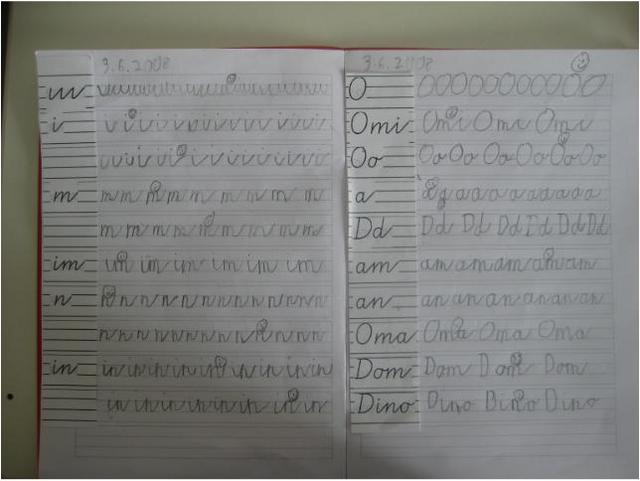 3.6.2008
i v i v i v i v v v i v i v i v
v v v i v i v i v v v v v v v
m m m m m m m m m m m
m m m m m m m m m m
im im im im im im im
n n n n n n n n n n n n n
n n n n n n n n n n n n
in in in in in in in in in in in
in in in in in in in in in
3.6.2008
O O O O O O O O O O O O
Omi Omi Omi Omi
Oo Oo Oo Oo Oo Oo Oo
a a a a a a a a a a
Dd Dd Dd Dd Dd Dd Dd
am am am am am am
an an an an an an an
Oma Oma Oma Oma
Dom Dom Dom Dom
Dino Dino Dino Dino